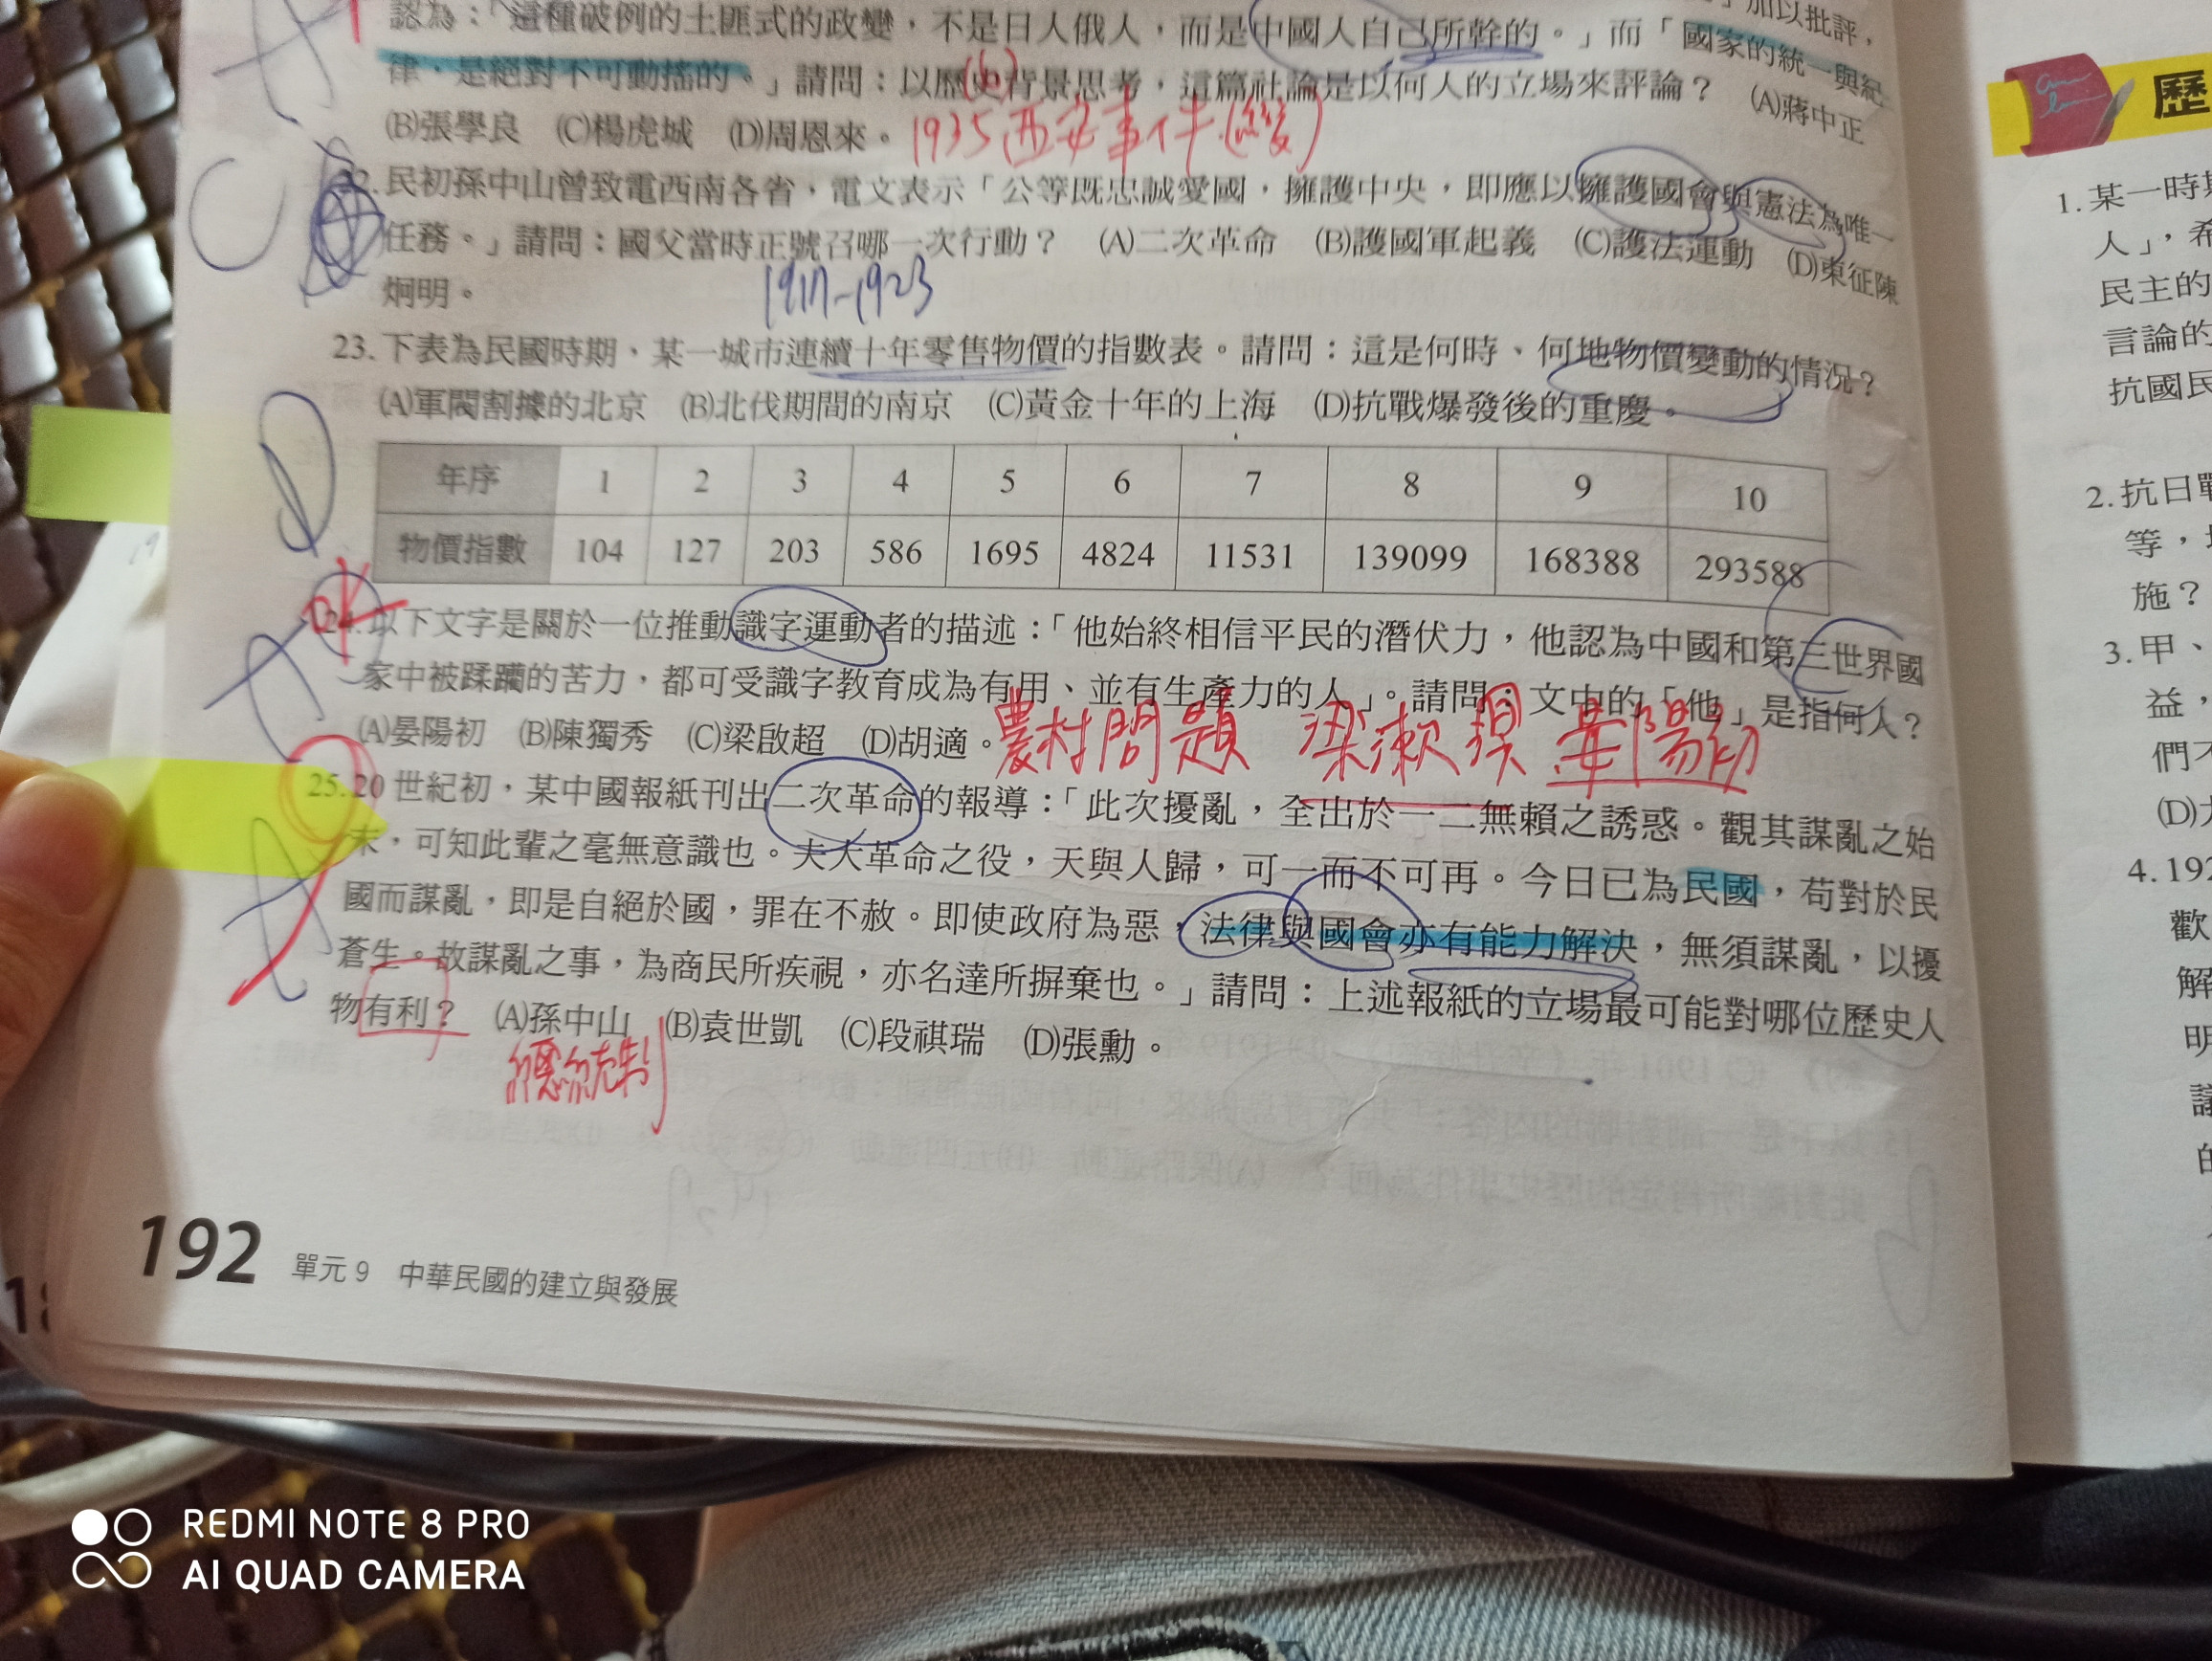 認為：「這種破例的土匪式的政變，不是日人俄人，而是中國人自己所幹的。」而「國家的統一與紀
加以批評，
律，是絕對不可動搖的。」請問：以歷史背景思考，這篇社論是以何人的立場來評論？ (A)蔣中正
(B)張學良 (C)楊虎城 (D)周恩來。
1935西安事件(變)
(6)
C
22.民初孫中山曾致電西南各省，電文表示「公等既忠誠愛國，擁護中央，即應以擁護國會與憲法為唯一
任務。」請問：國父當時正號召哪一次行動？ (A)二次革命 (B)護國軍起義 (C)護法運動 (D)東征陳
炯明。
1917-1923
D
23.下表為民國時期，某一城市連續十年零售物價的指數表。請問：這是何時、何地物價變動的情況？
(A)軍閥割據的北京 (B)北伐期間的南京 (C)黃金十年的上海 (D)抗戰爆發後的重慶。
年序 1 2 3 4 5 6 7 8 9 10
物價指數 104 127 203 586 1695 4824 11531 139099 168388 293588
A
24.以下文字是關於一位推動識字運動者的描述：「他始終相信平民的潛伏力，他認為中國和第三世界國
家中被蹂躪的苦力，都可受識字教育成為有用、並有生產力的人」。請問：文中的「他」是指何人？
(A)晏陽初 (B)陳獨秀 (C)梁啟超 (D)胡適。
農村問題 梁漱溟 晏陽初
25.20世紀初，某中國報紙刊出二次革命的報導：「此次擾亂，全出於一二無賴之誘惑。觀其謀亂之始
末，可知此輩之毫無意識也。夫大革命之役，天與人歸，可一而不可再。今日已為民國，苟對於民
國而謀亂，即是自絕於國，罪在不赦。即使政府為惡，法律與國會亦有能力解決，無須謀亂，以擾
蒼生。故謀亂之事，為商民所疾視，亦名達所摒棄也。」請問：上述報紙的立場最可能對哪位歷史人
物有利？ (A)孫中山 (B)袁世凱 (C)段祺瑞 (D)張勳。
192 單元9 中華民國的建立與發展
歷
1.某一時
人」，希
民主的
言論的
抗國民
2.抗日戰
等，
施？
3.甲、
益，
們不
(D)
4.192
歡
解
明
議
的
REDMI NOTE 8 PRO
AI QUAD CAMERA